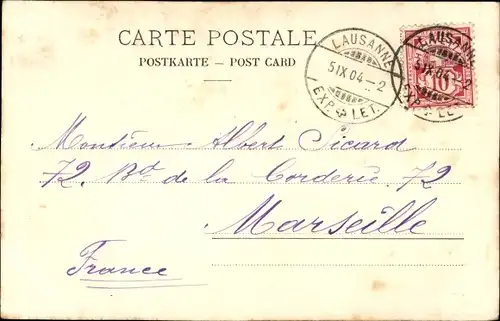 CARTE POSTALE
POSTKARTE – POST CARD
LAUSANNE
5 IX 04 – 2
EXP. LET.
LAUSANNE
5 IX 04 – 2
EXP. LET.
10
Monsieur Albert Sicard
72, Bd de la Corderie, 72
Marseille
France